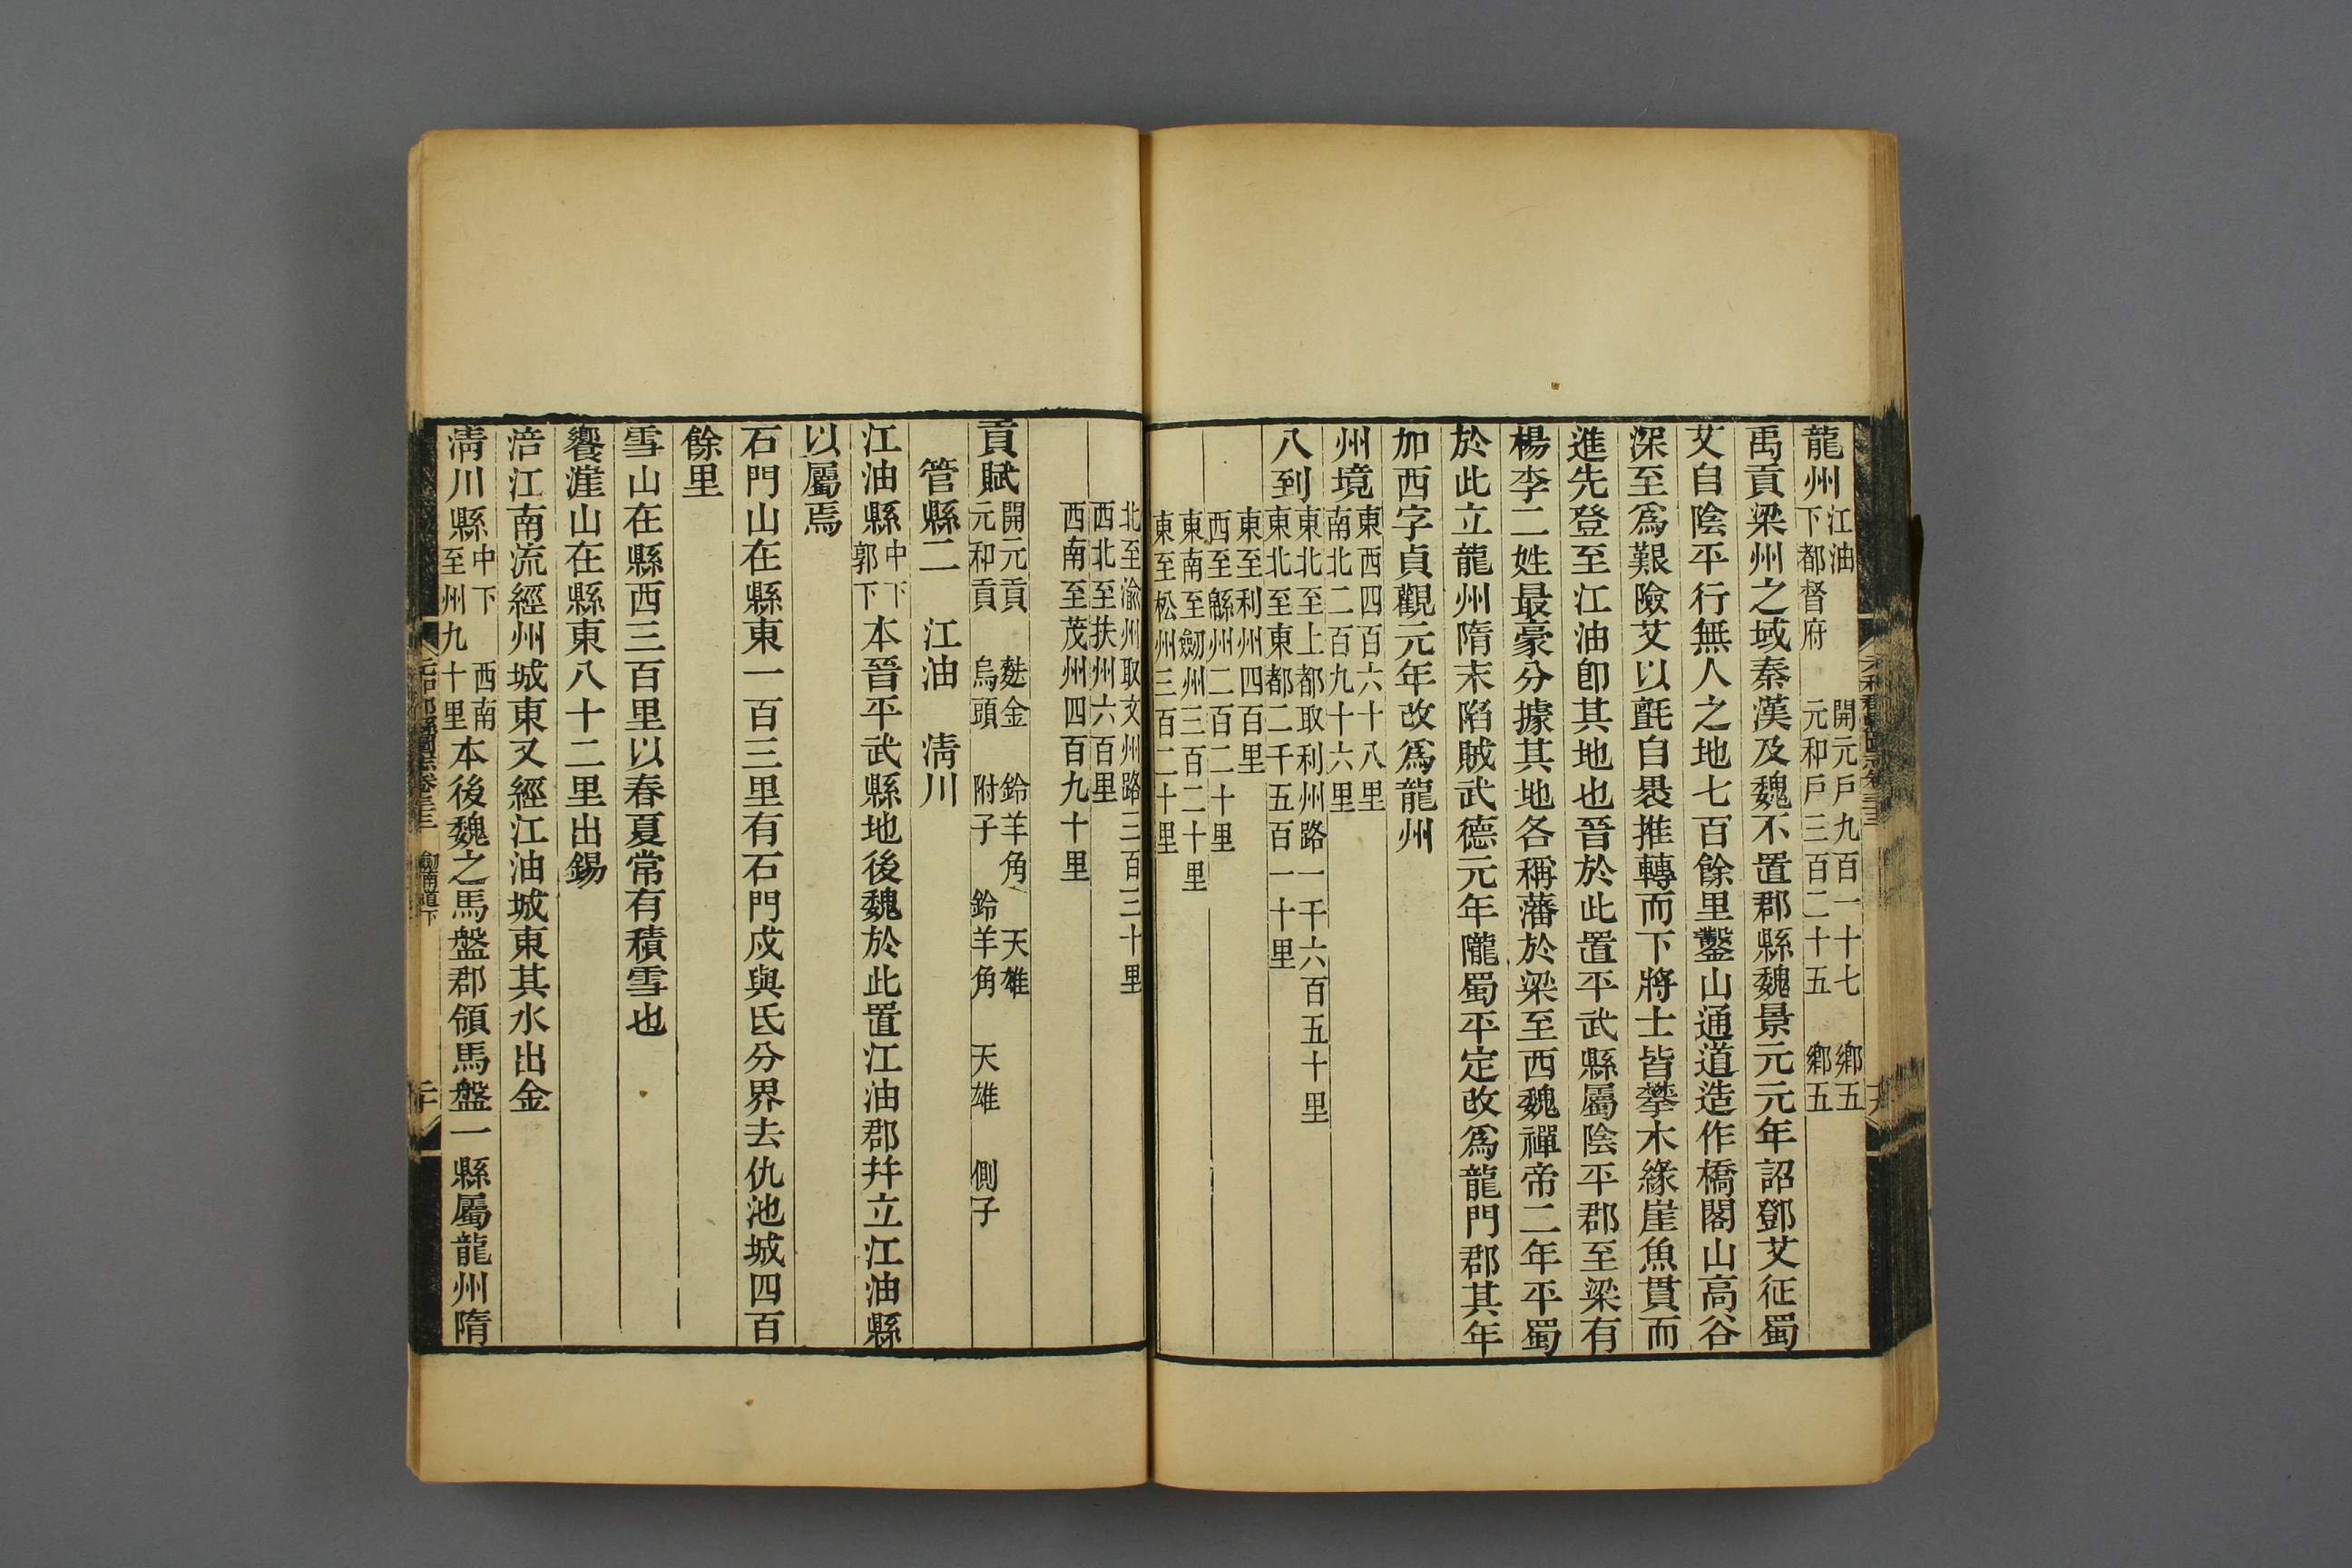 龍州 江油 下都督府 開元戶九百一十七 鄉五 元和戶三百二十五 鄉五
禹貢梁州之域秦漢及魏不置郡縣魏景元元年詔鄧艾征蜀
艾自陰平行無人之地七百餘里鑿山通道造作橋閣山高谷
深至爲艱險艾以氈自褁推轉而下將士皆攀木緣崖魚貫而
進先登至江油卽其地也晉於此置平武縣屬陰平郡至梁有
楊李二姓最豪分據其地各稱藩於梁至西魏禪帝二年平蜀
於此立龍州隋末陷賊武德元年隴蜀平定改爲龍門郡其年
加西字貞觀元年改爲龍州
州境 東西四百六十八里 南北二百九十六里
八到 東北至上都取利州路一千六百五十里 東北至東都二千五百一十里
東至利州四百里 西至緜州二百二十里
東南至劒州三百二十里 東至松州三百二十里
北至渝州取文州路三百三十里 西北至扶州六百里
西南至茂州四百九十里
貢賦 開元貢 麩金 鈴羊角 天雄 元和貢 烏頭 附子 鈴羊角 天雄 側子
管縣二 江油 淸川
江油縣 中下 郭下 本晉平武縣地後魏於此置江油郡幷立江油縣
以屬焉
石門山在縣東一百三里有石門戍與氐分界去仇池城四百
餘里
雪山在縣西三百里以春夏常有積雪也
饗崖山在縣東八十二里出錫
涪江南流經州城東又經江油城東其水出金
淸川縣 中下 西南至州九十里 本後魏之馬盤郡領馬盤一縣屬龍州隋
元和郡縣圖志卷三十三 劒南道下 二十